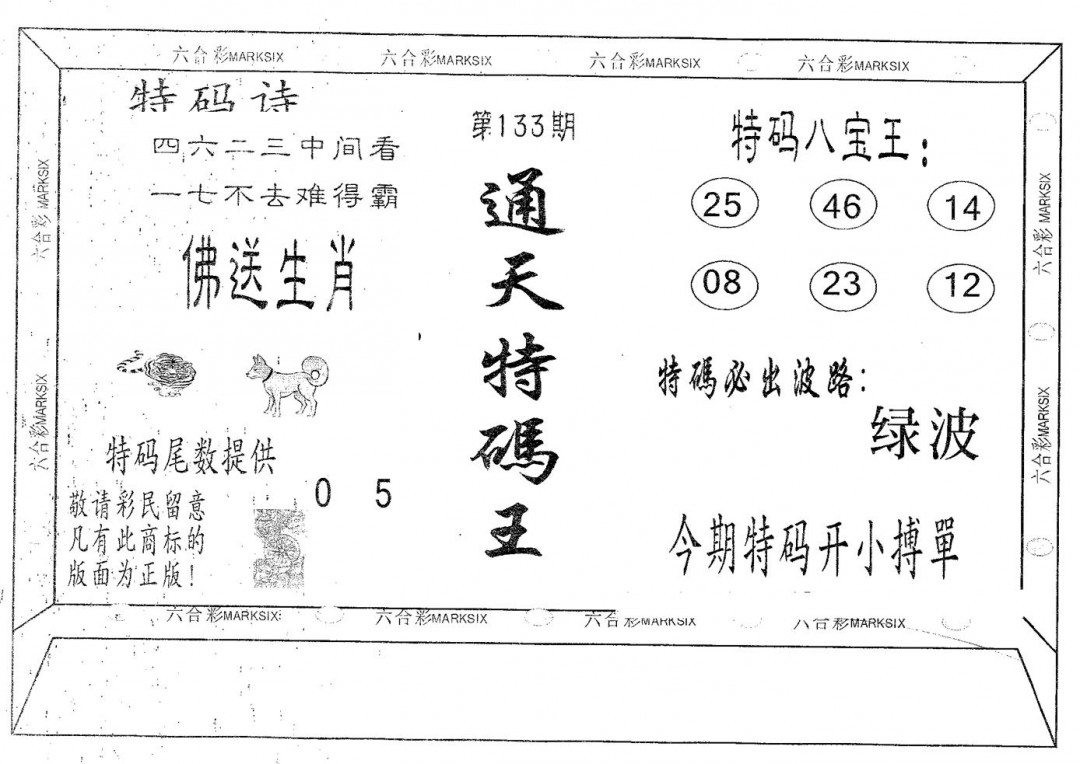 六合彩MARKSIX
六合彩MARKSIX
六合彩MARKSIX
六合彩MARKSIX
特码诗
四六二三中间看
一七不去难得霸
佛送生肖
特码尾数提供
0 5
敬请彩民留意
凡有此商标的
版面为正版！
第133期
通天特碼王
特码八宝王：
25 46 14
08 23 12
特碼必出波路：
绿波
今期特码开小搏單
六合彩MARKSIX
六合彩MARKSIX
六合彩MARKSIX
六合彩MARKSIX
六合彩MARKSIX
六合彩MARKSIX
六合彩MARKSIX
六合彩MARKSIX